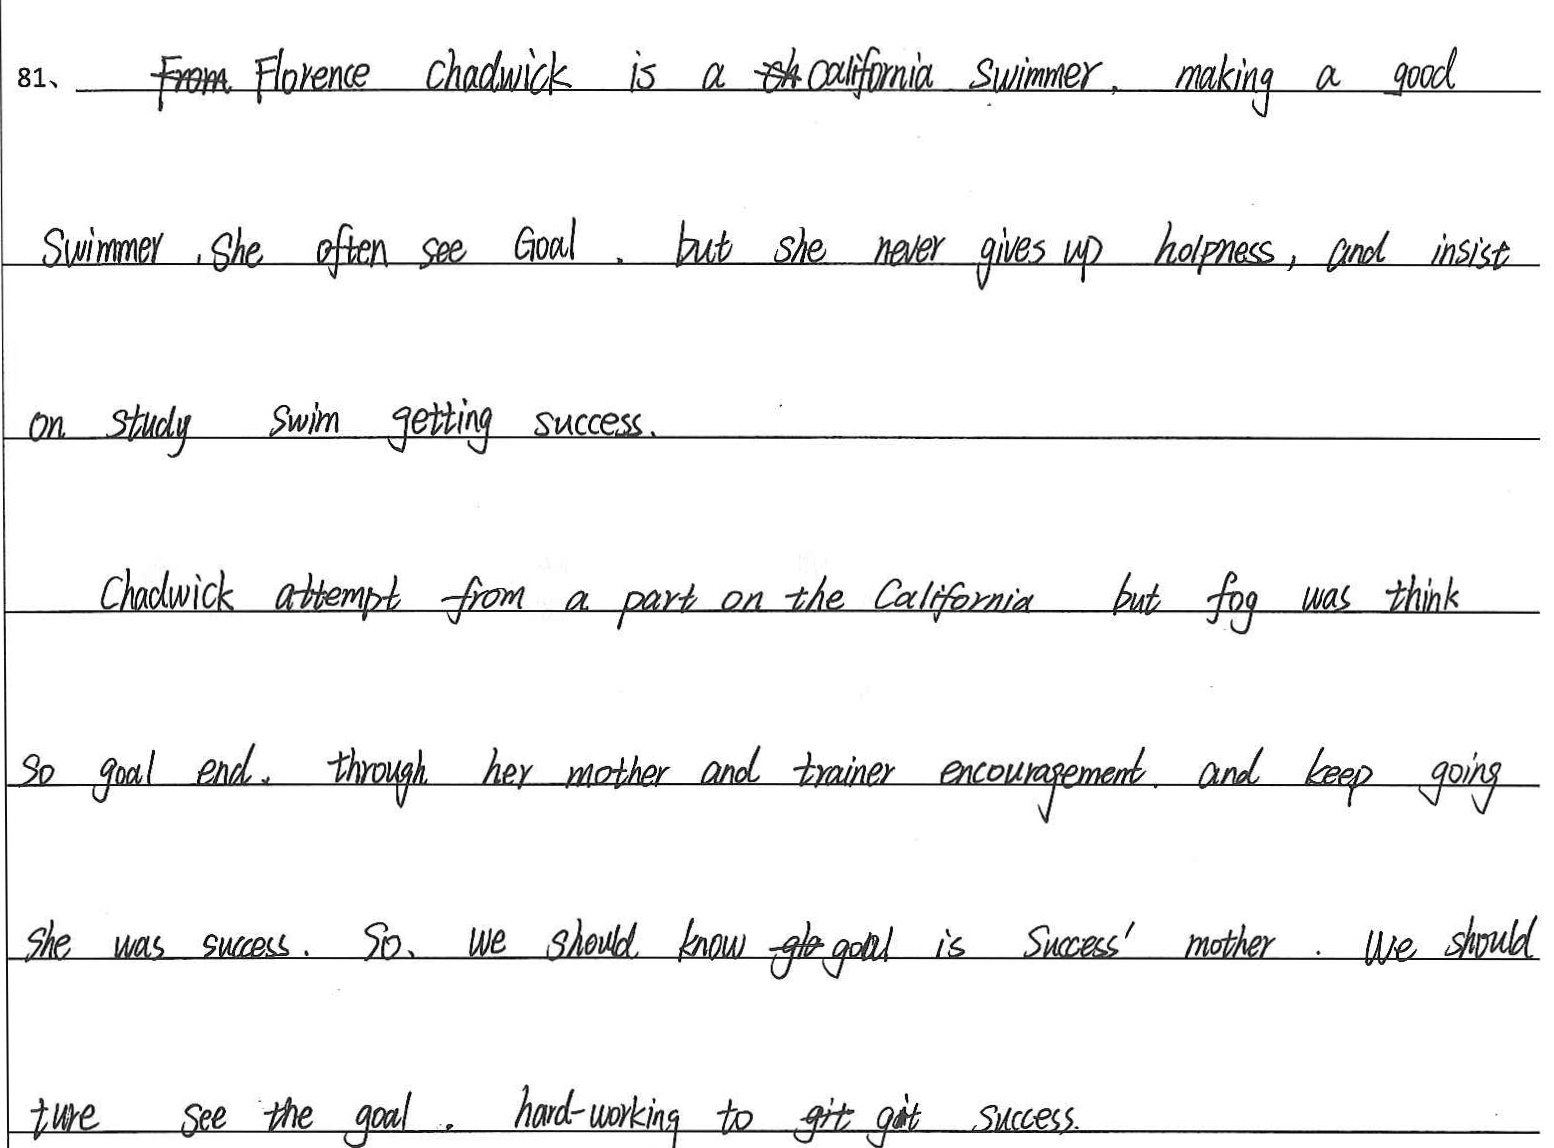 81、 From Florence Chadwick is a ch California Swimmer, making a good
Swimmer. She often see Goal. but she never gives up holpness, and insist
on study swim getting success.
Chadwick attempt from a part on the California but fog was think
so goal end. through her mother and trainer encouragement. and keep going
she was success. So. we should know glo goal is Success' mother. We should
ture see the goal. hard-working to git git success.